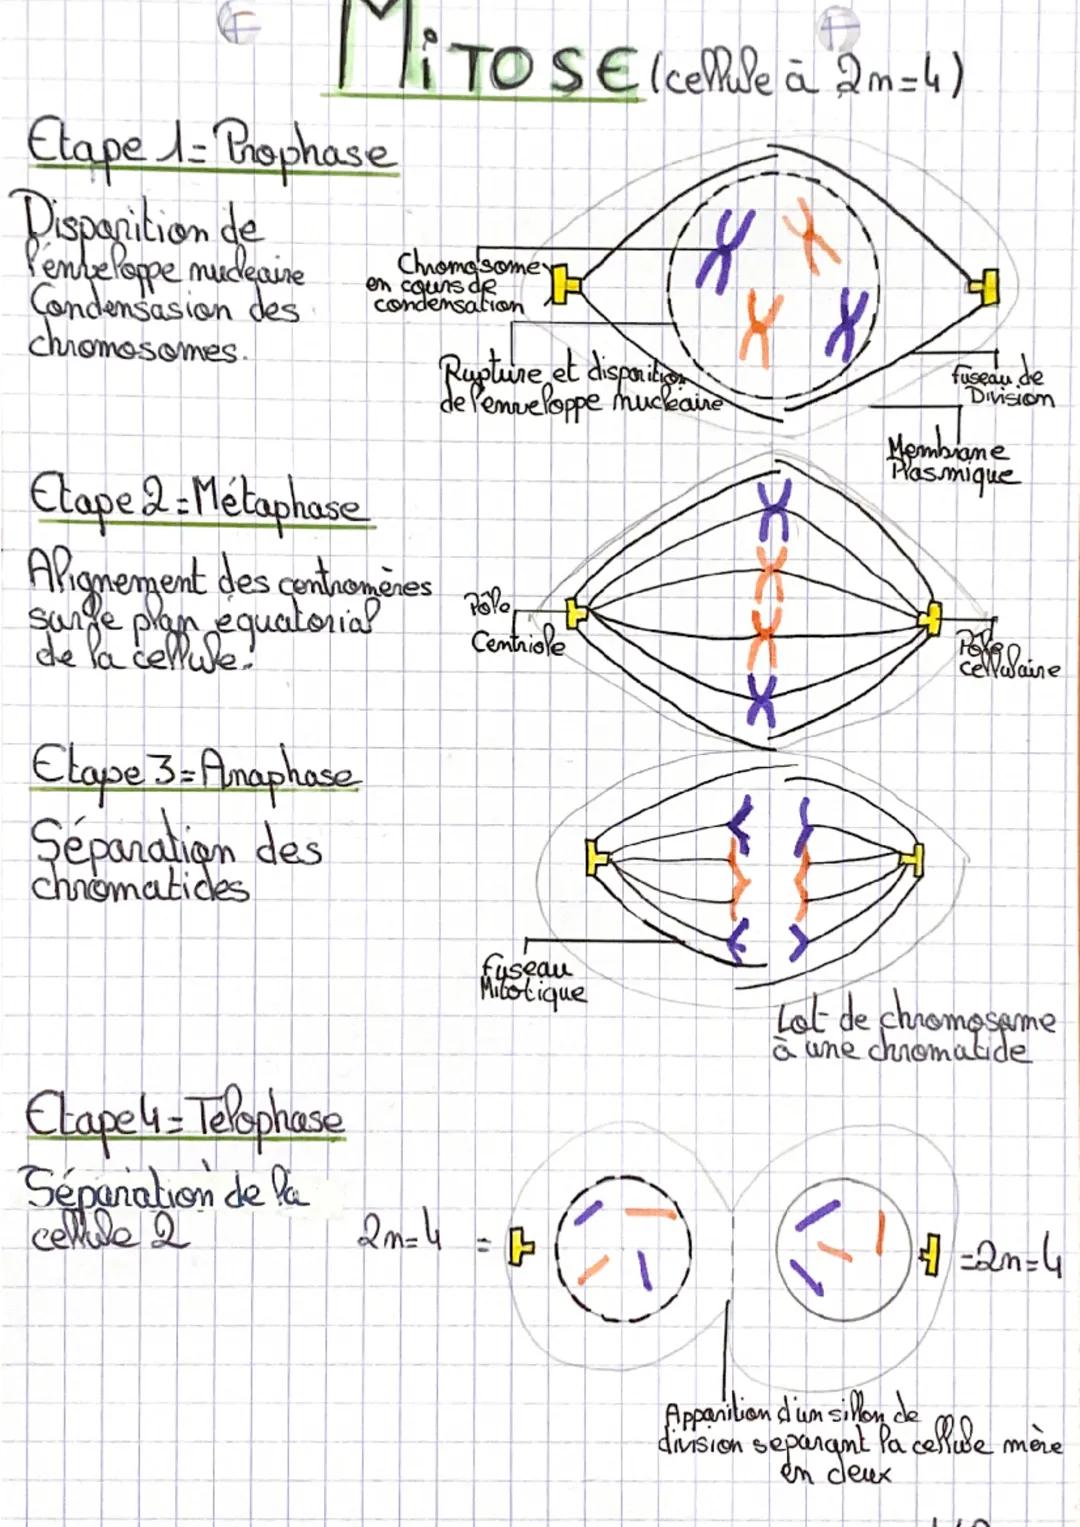 MiTOSE (cellule à 2n=4)
Etape 1= Prophase
Disparition de
l'enveloppe nucleaire
Condensasion des
chromosomes.
Chromosome
en cours de
condensation
Rupture et disparition
de l'enveloppe nucléaire
fuseau de
Division
Membrane
Plasmique
Etape 2=Métaphase
Alignement des centromères
sur le plan équatorial
de la cellule.
Pôle
Centriole
Pôle
cellulaire
Etape 3=Anaphase
Séparation des
chromatides
fuseau
Mitotique
Lot de chromosome
à une chromatide
Etape4=Telophase
Séparation de la
cellule 2
2n=4 =
=2n=4
Apparition d'un sillon de
division separant la cellule mère
en deux